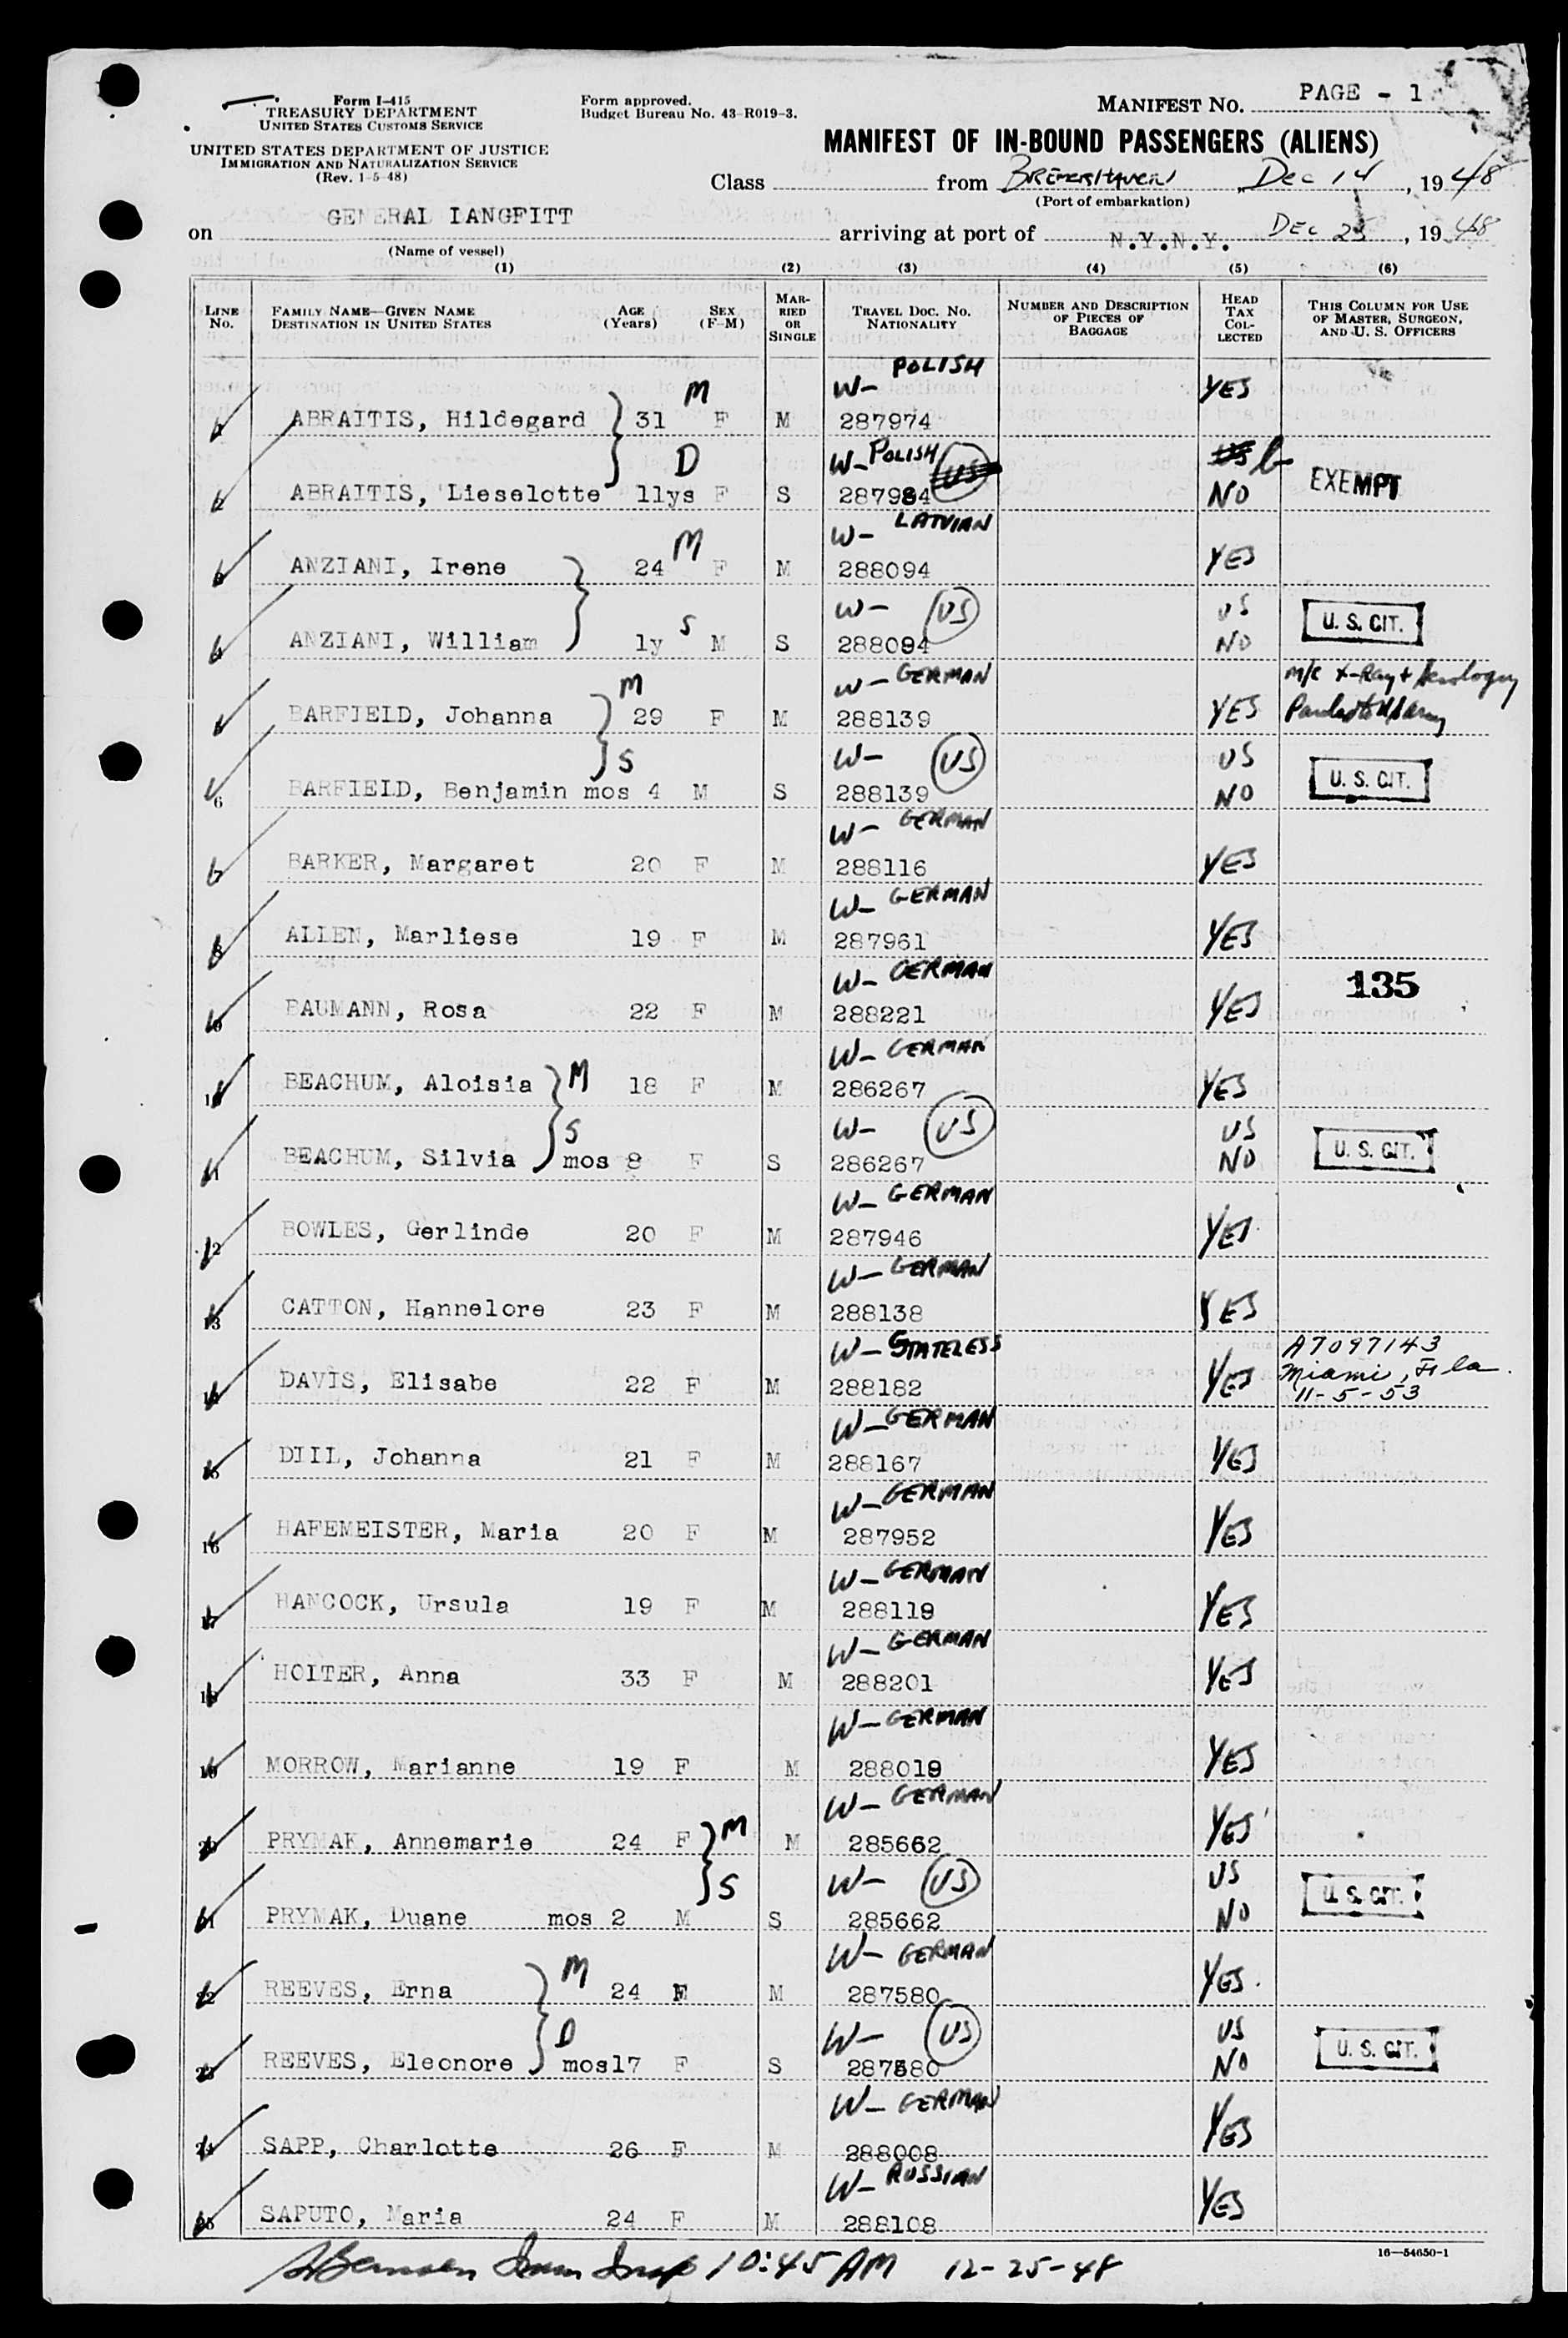 Form I-415
TREASURY DEPARTMENT
UNITED STATES CUSTOMS SERVICE
UNITED STATES DEPARTMENT OF JUSTICE
IMMIGRATION AND NATURALIZATION SERVICE
(Rev. 1-5-48)
Form approved.
Budget Bureau No. 43-R019-3.
MANIFEST NO. PAGE - 1
MANIFEST OF IN-BOUND PASSENGERS (ALIENS)
Class from BREMERHAVEN, Dec 14, 1948
(Port of embarkation)
on GENERAL LANGFITT arriving at port of N.Y.N.Y. DEC 25, 1948
(Name of vessel)
(1) (2) (3) (4) (5) (6)
LINE No. FAMILY NAME—GIVEN NAME DESTINATION IN UNITED STATES AGE (Years) SEX (F-M) MARRIED OR SINGLE TRAVEL DOC. NO. NATIONALITY NUMBER AND DESCRIPTION OF PIECES OF BAGGAGE HEAD TAX COLLECTED THIS COLUMN FOR USE OF MASTER, SURGEON, AND U. S. OFFICERS
M W- POLISH YES
1 ABRAITIS, Hildegard 31 F M 287974
D W- POLISH US US
2 ABRAITIS, Lieselotte 11ys F S 287984 NO EXEMPT
M W- LATVIAN
3 ANZIANI, Irene 24 F M 288094 YES
S W- US US U. S. CIT.
4 ANZIANI, William 1y M S 288094 NO
M W- GERMAN m/c X-Ray +
5 BARFIELD, Johanna 29 F M 288139 YES
S W- US US U. S. CIT.
6 BARFIELD, Benjamin mos 4 M S 288139 NO
W- GERMAN
7 BARKER, Margaret 20 F M 288116 YES
W- GERMAN
8 ALLEN, Marliese 19 F M 287961 YES
W- GERMAN 135
9 BAUMANN, Rosa 22 F M 288221 YES
W- GERMAN
10 BEACHUM, Aloisia M 18 F M 286267 YES
S W- US US U. S. CIT.
11 BEACHUM, Silvia mos 8 F S 286267 NO
W- GERMAN
12 BOWLES, Gerlinde 20 F M 287946 YES
W- GERMAN
13 CATTON, Hannelore 23 F M 288138 YES
W- STATELESS A7097143
14 DAVIS, Elisabe 22 F M 288182 YES Miami, Fla.
11-5-53
W- GERMAN
15 DILL, Johanna 21 F M 288167 YES
W- GERMAN
16 HAFEMEISTER, Maria 20 F M 287952 YES
W- GERMAN
17 HANCOCK, Ursula 19 F M 288119 YES
W- GERMAN
18 HOLTER, Anna 33 F M 288201 YES
W- GERMAN
19 MORROW, Marianne 19 F M 288019 YES
W- GERMAN
20 PRYMAK, Annemarie 24 F M M 285662 YES
S W- US US U. S. CIT.
21 PRYMAK, Duane mos 2 M S 285662 NO
M W- GERMAN
22 REEVES, Erna 24 F M 287580 YES
D W- US US U. S. CIT.
23 REEVES, Eleonore mos17 F S 287580 NO
W- GERMAN
24 SAPP, Charlotte 26 F M 288008 YES
W- RUSSIAN
25 SAPUTO, Maria 24 F M 288108 YES
16—54650-1
10:45 AM 12-25-48